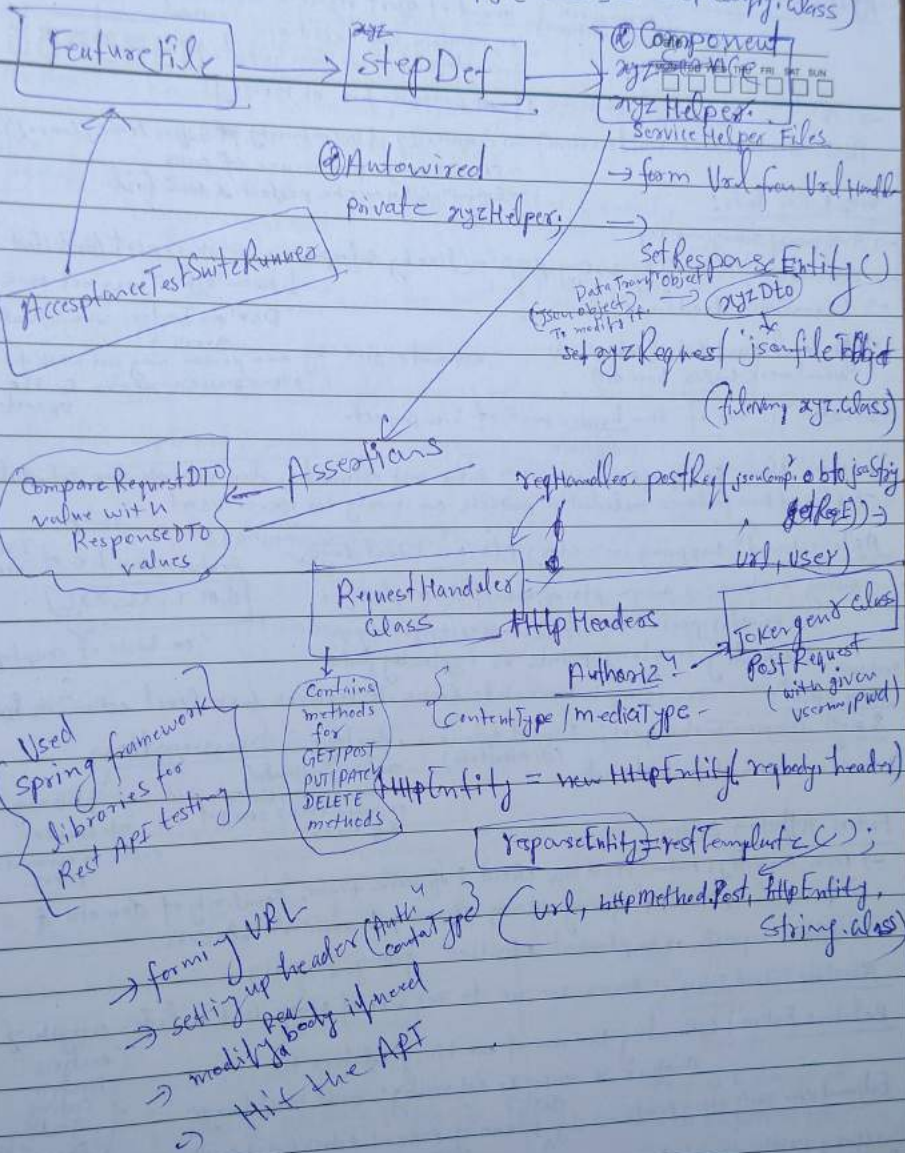 py.class)
FeatureFile
xyz
StepDef
@Component
xyz
xyzHelper.
ServiceHelper Files
THU FRI SAT SUN
@Autowired
private xyzHelper;
→ form Url from Url Handler
→
SetResponseEntity()
AccesptanceTestSuiteRunner
Data Transf" Object
(Json object) → xyzDto
To modify it.
set xyzRequest( jsonfileToObject
(filename, xyz.class)
Assertions
Compare RequestDTO
value with
ResponseDTO
values
reqHandler.postReq(
getReqE)) →
url, user)
RequestHandaler
class
HttpHeaders
Tokengenr class
Authoriz"
Post Request
(with given
usernm, pwd)
ContentType / mediaType -
Contains
methods
for
GET/POST
PUT/PATCH
DELETE
methods
Used
spring framework
libraries for
Rest API testing
HttpEntity = new HttpEntity( reqbody, header)
responseEntity = restTemplate();
(url, httpMethod.Post, httpEntity,
String.class)
→ forming URL
→ setting up header (Auth"
contentType)
→ modify body if need
→ Hit the API